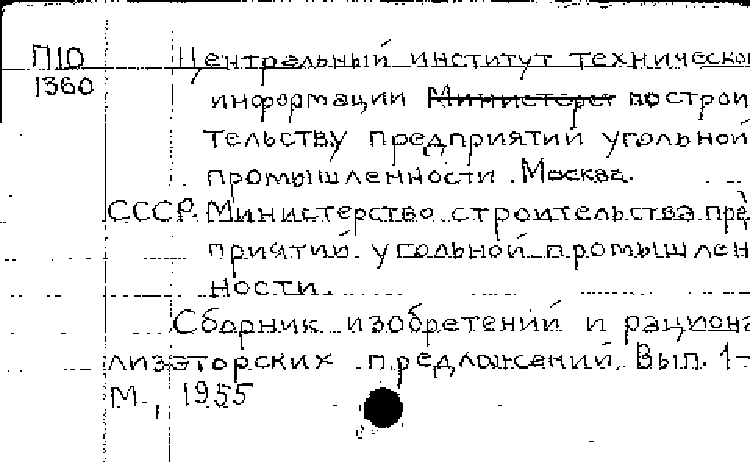 П10 Центральный институт техническо
1360 информации Министерст по строи
тельству предприятий угольной
промышленности. Москва.
СССР. Министерство строительства пре
приятий угольной промышлен
ности.
Сборник изобретений и рациона
лизаторских предложений. Вып. 1-
М., 1955